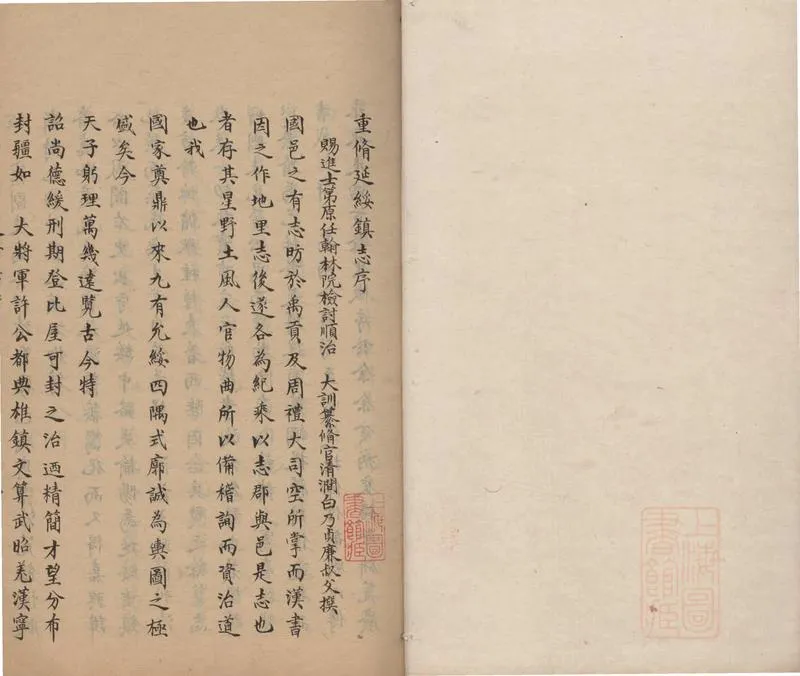 重脩延綏鎮志序
賜進士第原任翰林院檢討順治 大訓纂脩官清澗白乃貞廉叔父撰
國邑之有志昉於禹貢及周禮大司空所掌而漢書
因之作地里志後遂各為紀乘以志郡與邑是志也
者存其星野土風人官物曲所以備稽詢而資治道
也我
國家奠鼎以來九有允綏四隅式廓誠為輿圖之極
盛矣今
天子躬理萬幾遠覽古今特
詔尚德緩刑期登比屋可封之治迺精簡才望分布
封疆如 大將軍許公都典雄鎮文算武昭羌漢寧
上海圖書館藏
上海圖書館藏